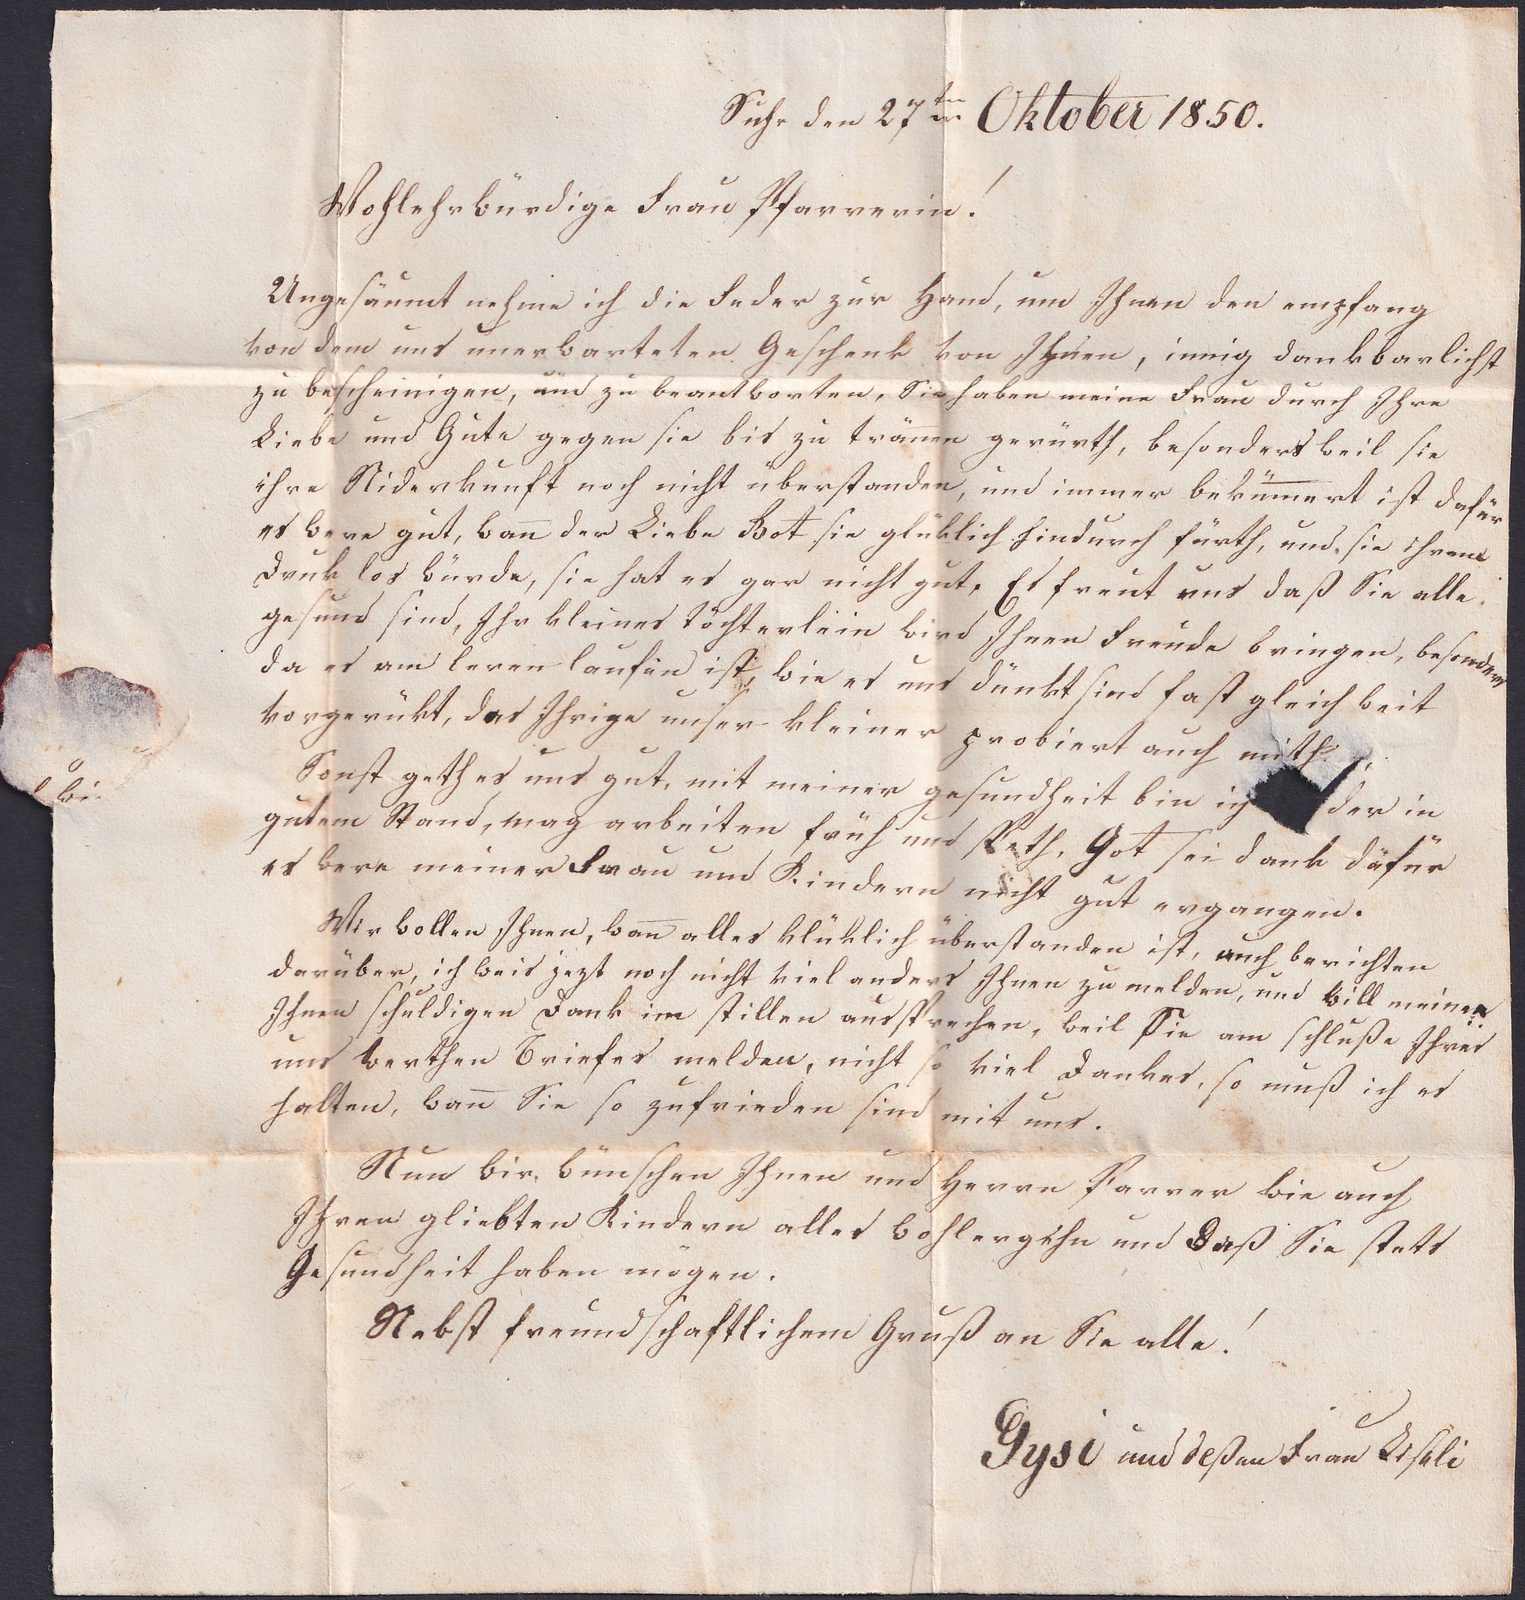 Suhr den 27ten Oktober 1850.
Wohlehrwürdige Frau Pfarrerin!
Ungesäumt nehme ich die Feder zur Hand, um Ihnen den empfang
von dem uns unerwarteten Geschenk von Ihnen, innig dankbarlichst
zu bescheinigen, und zu beantworten, Sie haben meine Frau durch Ihre
Liebe und Güte gegen sie bis zu tränen gerürth, besonders weil sie
ihre Niderkunft noch nicht überstanden, und immer bekümert ist dafür
es were gut, wann der Liebe Got sie glüklich hindurch fürth, und sie ihrem
Druk los würde, sie hat es gar nicht gut. Es freut uns daß Sie alle
gesund sind, Ihr kleines töchterlein wird Ihnen Freude bringen, besonders
da es am leren laufen ist, wie es uns dünkt sind fast gleich weit
vorgerükt, das Ihrige unser kleiner probiert auch mith.
Sonst geth es uns gut, mit meiner gesundheit bin ich der in
gutem Stand, mag arbeiten früh und speth, Got sei dank dafür
es were meiner Frau und Kindern nicht gut ergangen.
Wir wollen Ihnen, wann alles klüklich überstanden ist, auch berichten
darüber, ich weis jezt noch nicht viel anders Ihnen zu melden, und will meinen
Ihnen schuldigen Dank im stillen aussprechen, weil Sie am schluße Ihres
uns werthen Briefes melden, nicht so viel Dankes, so muß ich es
halten, wann Sie so zufrieden sind mit uns.
Nun wir wünschen Ihnen und Herrn Pfarrer wie auch
Ihren gliebten Kindern alles wohlergehn und daß Sie stets
Gesundheit haben mögen.
Nebst freundschaftlichem Gruß an Sie alle!
Gysi und deßen Frau Liseli